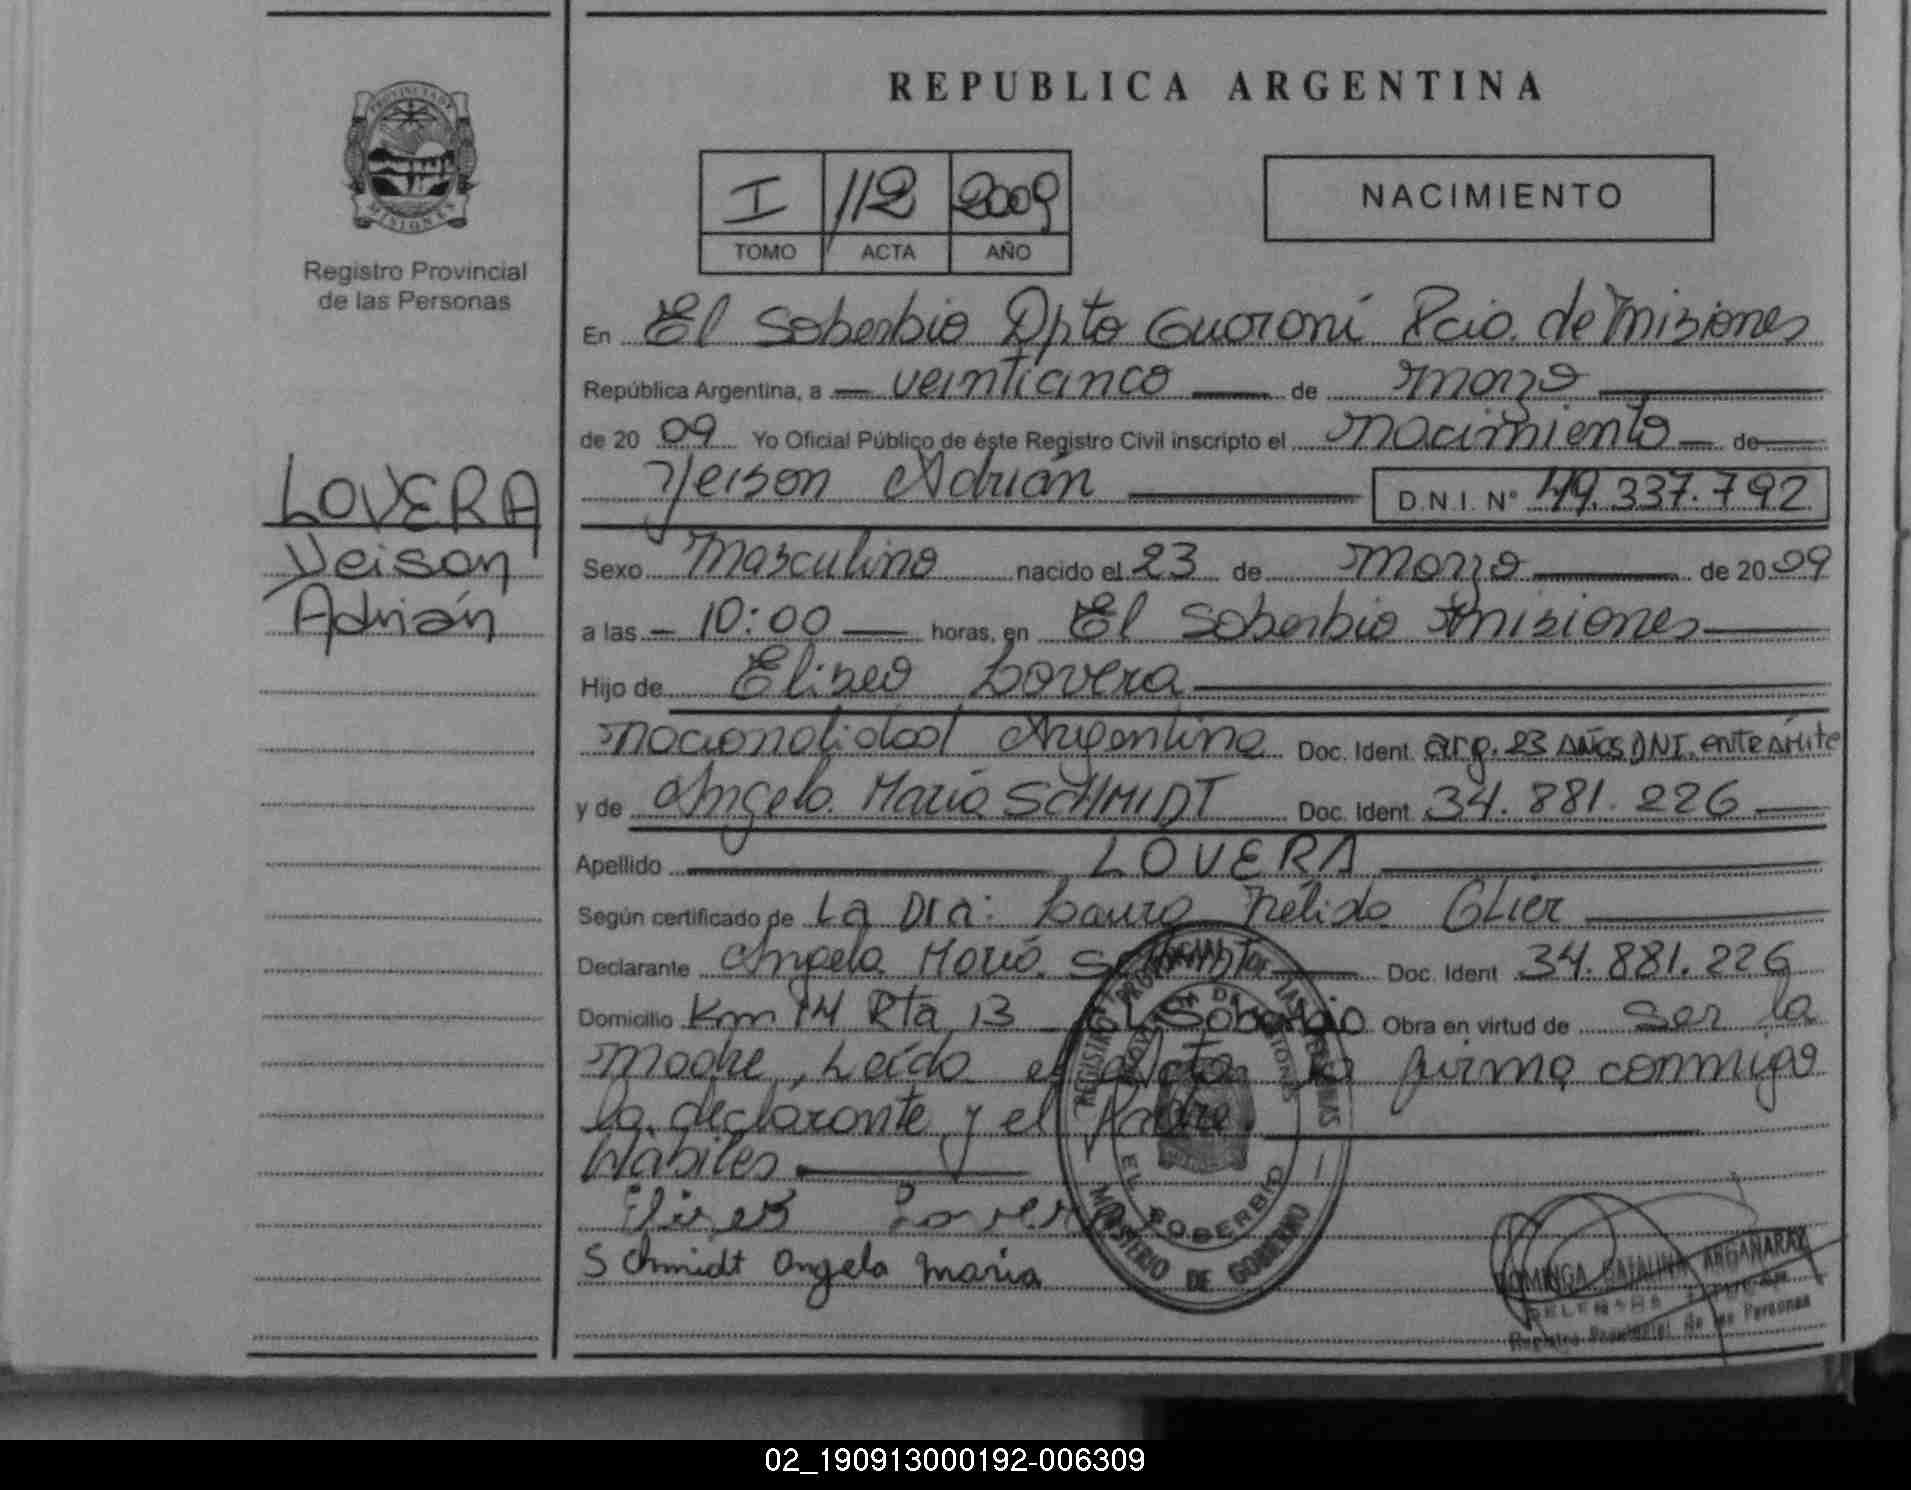 REPUBLICA ARGENTINA
PROVINCIA DE
MISIONES
Registro Provincial
de las Personas
I 112 2009
TOMO ACTA AÑO
NACIMIENTO
En El Soberbio Dpto Guaraní Pcia. de Misiones
República Argentina, a veinticinco de marzo
de 2009 Yo Oficial Público de éste Registro Civil inscripto el nacimiento de
Yeison Adrián D.N.I. N° 49.337.792
LOVERA
Yeison
Adrián
Sexo Masculino nacido el 23 de Marzo de 2009
a las 10:00 horas, en El Soberbio Misiones
Hijo de Eliseo Lovera
nacionalidad Argentina Doc. Ident. arg. 23 AÑOS DNI. en trámite
y de Angela María SCHMIDT Doc. Ident 34.881.226
Apellido LOVERA
Según certificado de La Dra: Laura Nélida Glier
Declarante Angela María Schmidt Doc. Ident 34.881.226
Domicilio Km 14 Rta 13 El Soberbio Obra en virtud de ser la
madre, Leída el Acta la firma conmigo
la declarante y el Padre
Hábiles
REGISTRO PROVINCIAL DE LAS PERSONAS
PROVINCIA DE MISIONES
EL SOBERBIO
MINISTERIO DE GOBIERNO
Eliseo Lovera
Schmidt Angela maria
DOMINGA CATALINA ARGAÑARAY
DELEGADA
Registro Provincial de las Personas
02_190913000192-006309